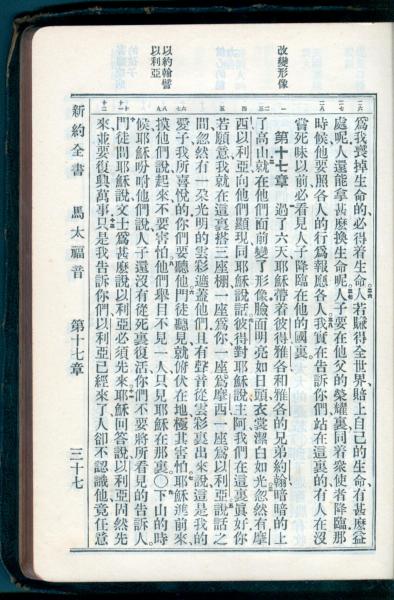 改變形像
以約翰譬
以利亞
爲我喪掉生命的必得着生命人若賺得全世界賠上自己的生命有甚麽益
處呢人還能拿甚麽換生命呢人子要在他父的榮耀裏同着衆使者降臨那
時候他要照各人的行爲報應各人我實在告訴你們站在這裏的有人在沒
嘗死味以前必看見人子降臨在他的國裏
第十七章 過了六天耶穌帶着彼得雅各和雅各的兄弟約翰暗暗的上
了高山就在他們面前變了形像臉面明亮如日頭衣裳潔白如光忽然有摩
西以利亞向他們顯現同耶穌說話彼得對耶穌說主阿我們在這裏眞好你
若願意我就在這裏搭三座棚一座爲你一座爲摩西一座爲以利亞說話之
間忽然有一朶光明的雲彩遮蓋他們且有聲音從雲彩裏出來說這是我的
愛子我所喜悅的你們要聽他門徒聽見就俯伏在地極其害怕耶穌進前來
摸他們說起來不要害怕他們舉目不見一人只見耶穌在那裏〇下山的時
候耶穌吩咐他們說人子還沒有從死裏復活你們不要將所看見的告訴人
門徒問耶穌說文士爲甚麽說以利亞必須先來耶穌回答說以利亞固然先
來並要復興萬事只是我告訴你們以利亞已經來了人卻不認識他竟任意
新約全書 馬太福音 第十七章 三十七